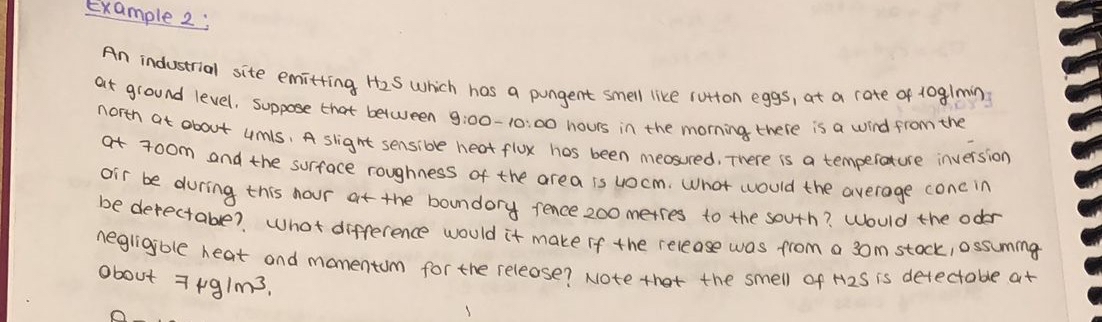 Example 2:
An industrial site emitting H2S which has a pungent smell like rutton eggs, at a rate of 10g/min
at ground level. Suppose that between 9:00-10:00 hours in the morning there is a wind from the
north at about 4m/s. A slight sensible heat flux has been measured. There is a temperature inversion
at 700m and the surface roughness of the area is 40cm. What would the average conc in
air be during this hour at the boundary fence 200 metres to the south? Would the odor
be detectable? What difference would it make if the release was from a 30m stack, assuming
negligible heat and momentum for the release? Note that the smell of H2S is detectable at
about 7µg/m³.